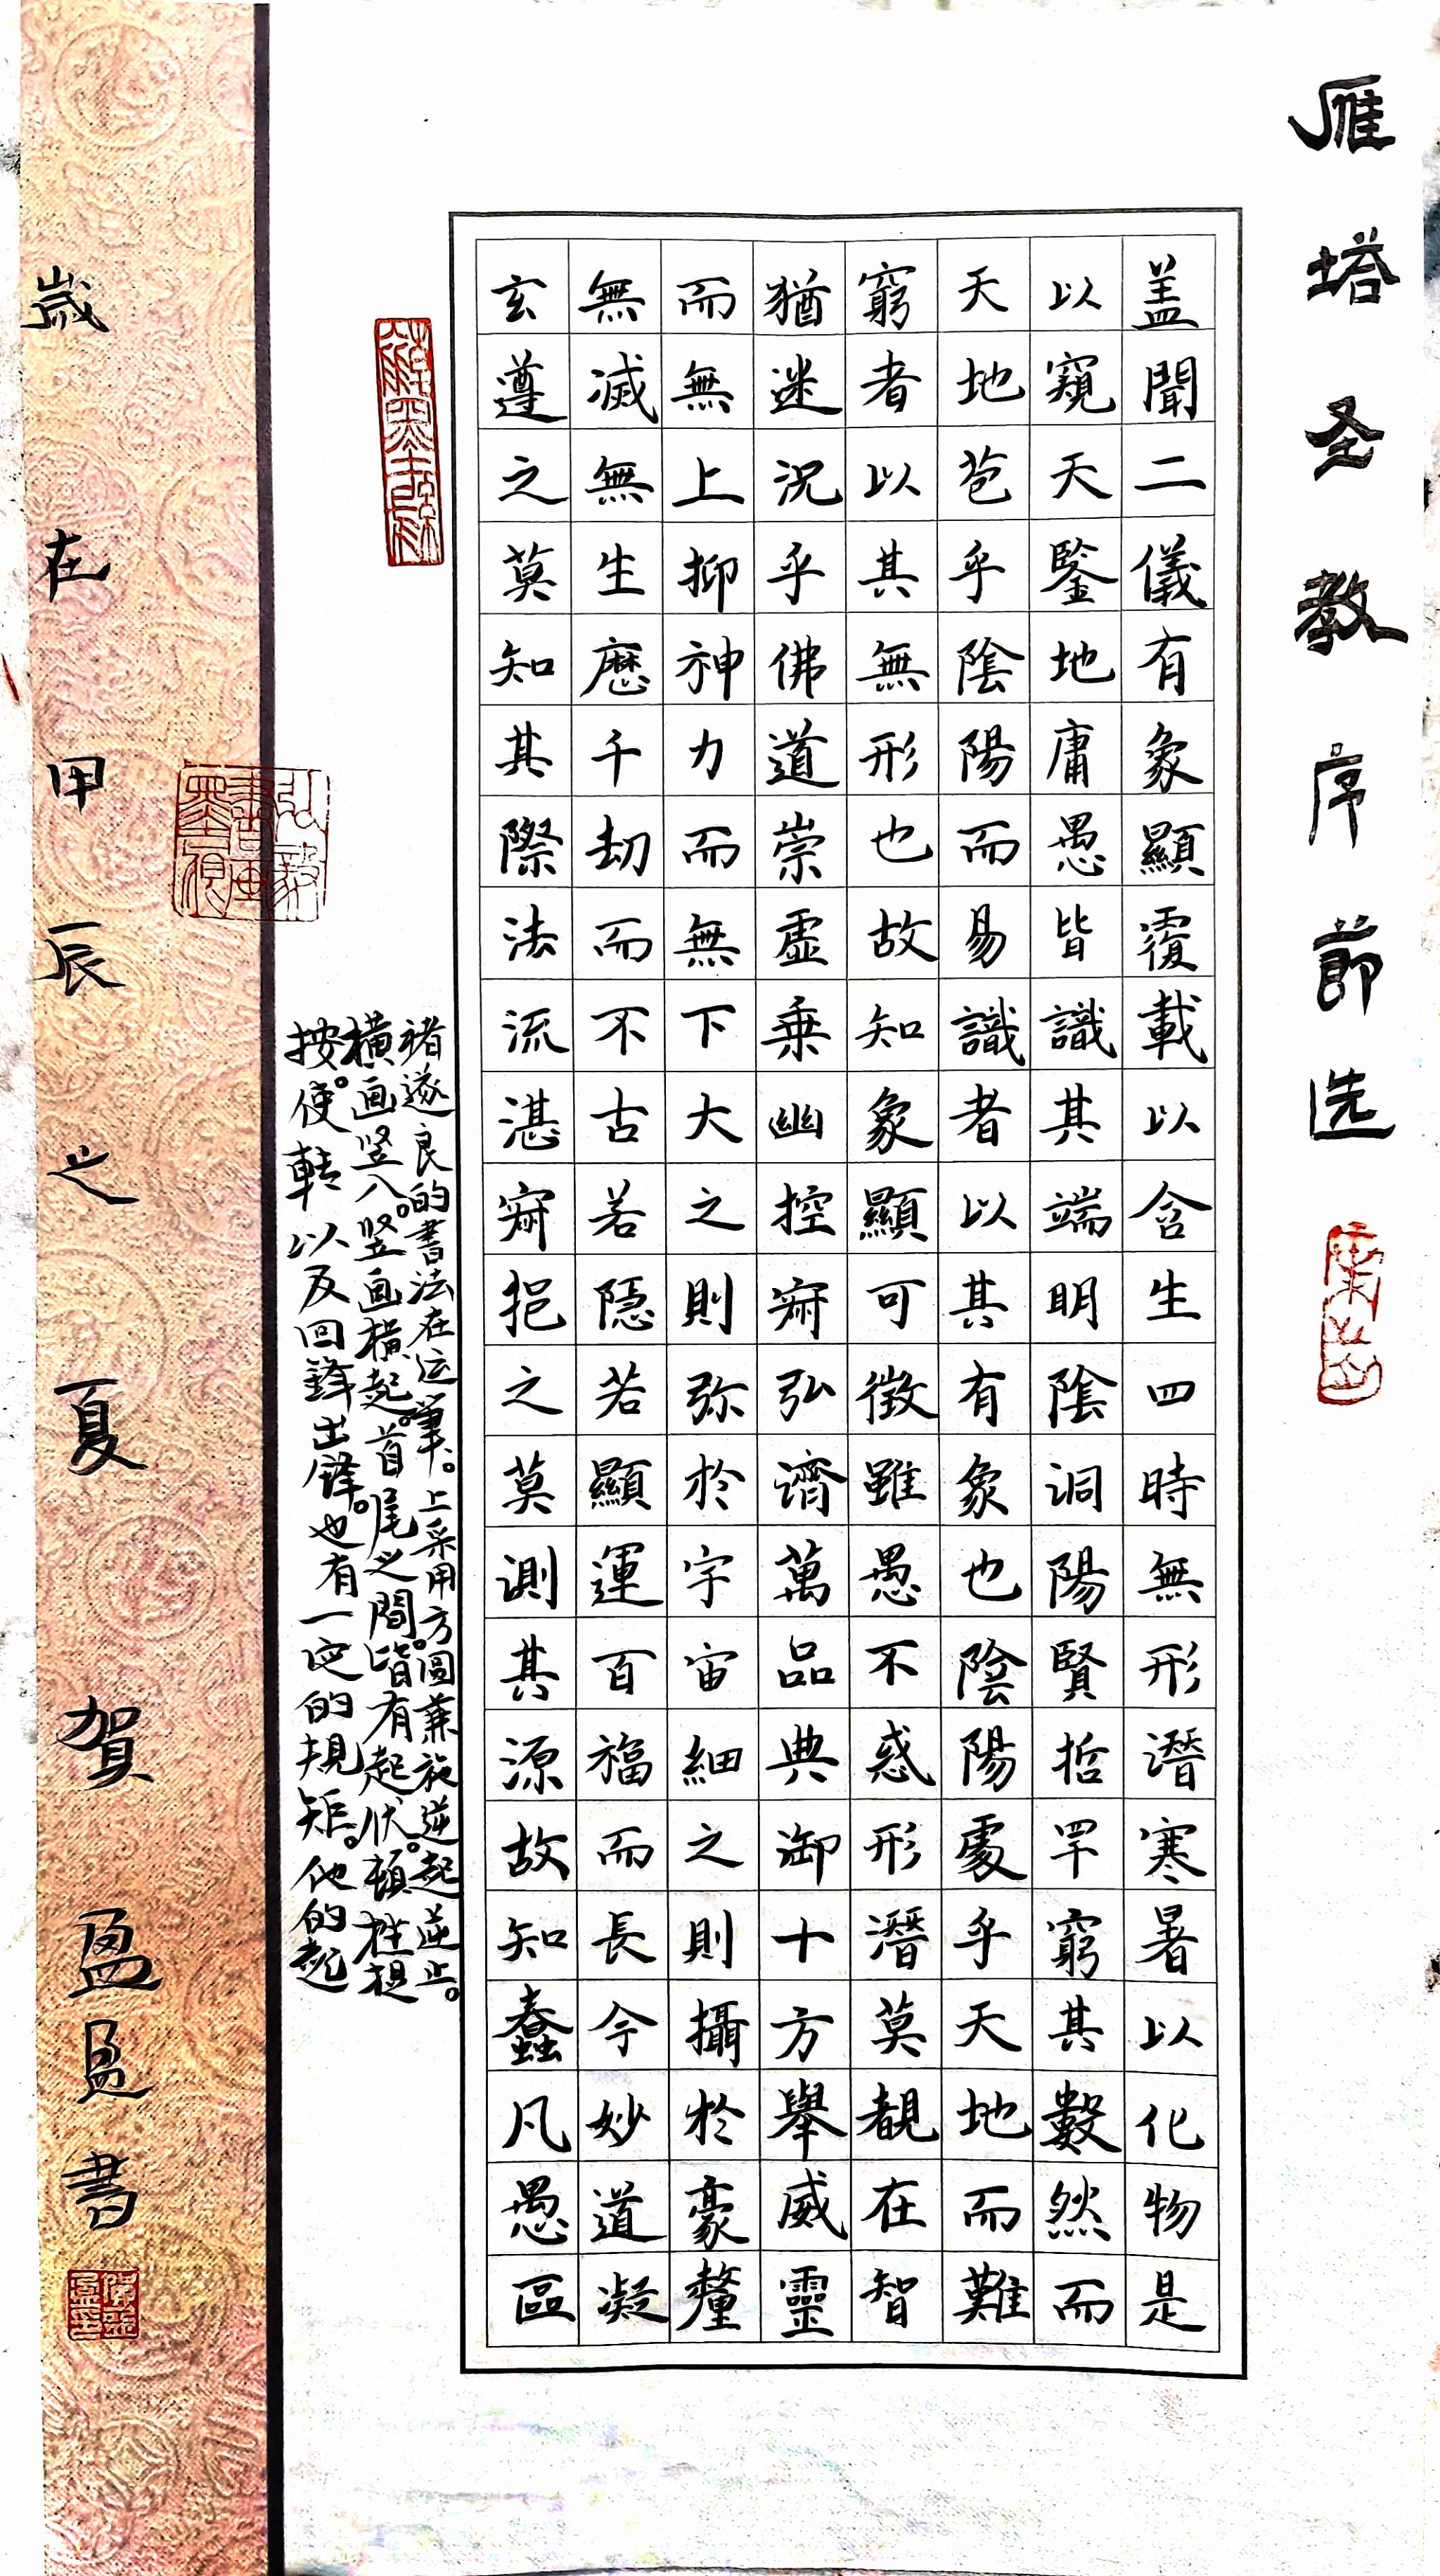 雁塔圣教序節选
盖聞二儀有象顯覆載以含生四時無形潛寒暑以化物是
以窺天鑒地庸愚皆識其端明陰洞陽賢哲罕窮其數然而
天地苞乎陰陽而易識者以其有象也陰陽處乎天地而難
窮者以其無形也故知象顯可徵雖愚不惑形潛莫覩在智
猶迷況乎佛道崇虛乗幽控寂弘濟萬品典御十方舉威靈
而無上抑神力而無下大之則弥於宇宙細之則攝於豪釐
無滅無生歷千劫而不古若隱若顯運百福而長今妙道凝
玄遵之莫知其際法流湛寂挹之莫測其源故知蠢凡愚區
褚遂良的書法在运筆。上采用方。圆兼施逆起逆止。
橫画竖入。竖画橫起。首尾之間。皆有起伏。頓挫提
按。使轉以及回鋒出鋒。也有一定的規矩。他的起
歲在甲辰之夏賀盈盈書
弘毅書画墨痕